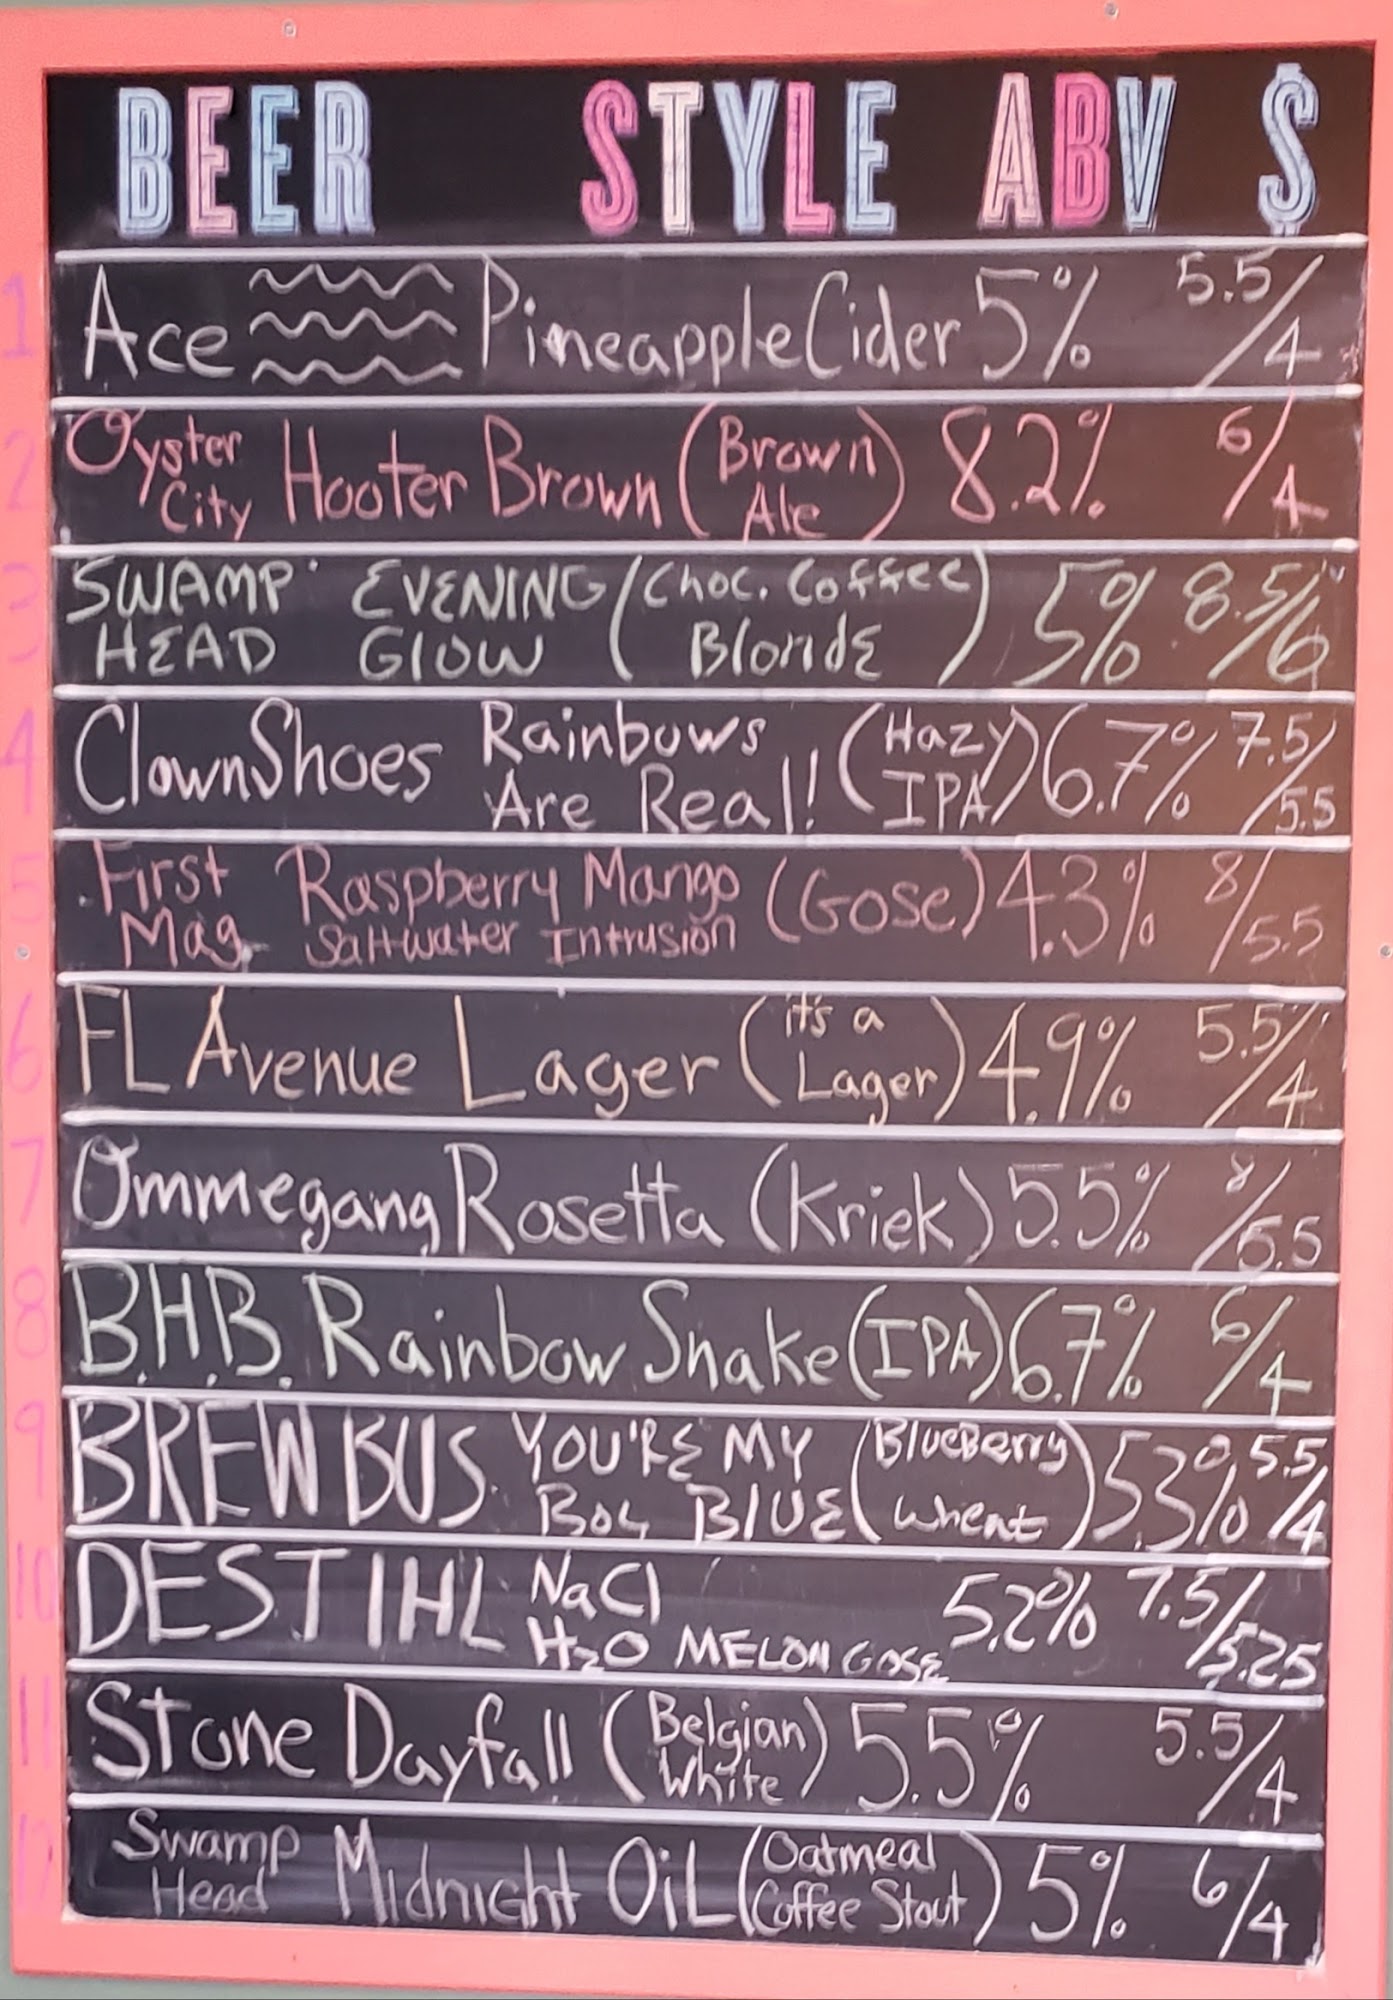 BEER STYLE ABV $
1 Ace Pineapple Cider 5% 5.5/4
2 Oyster City Hooter Brown (Brown Ale) 8.2% 6/4
3 SWAMP HEAD EVENING GLOW (Choc. Coffee Blonde) 5% 8.5/6
4 ClownShoes Rainbows Are Real!! (Hazy IPA) 6.7% 7.5/5.5
5 First Mag. Raspberry Mango Saltwater Intrusion (Gose) 4.3% 8/5.5
6 FL Avenue Lager (it's a Lager) 4.9% 5.5/4
7 Ommegang Rosetta (Kriek) 5.5% 8/5.5
8 B.H.B. Rainbow Snake (IPA) 6.7% 6/4
9 BREW BUS YOU'RE MY BOY BLUE (BlueBerry Wheat) 5.3% 5.5/4
10 DESTIHL NaCl H2O MELON GOSE 5.2% 7.5/5.25
11 Stone Dayfall (Belgian White) 5.5% 5.5/4
12 Swamp Head Midnight OiL (Oatmeal Coffee Stout) 5% 6/4